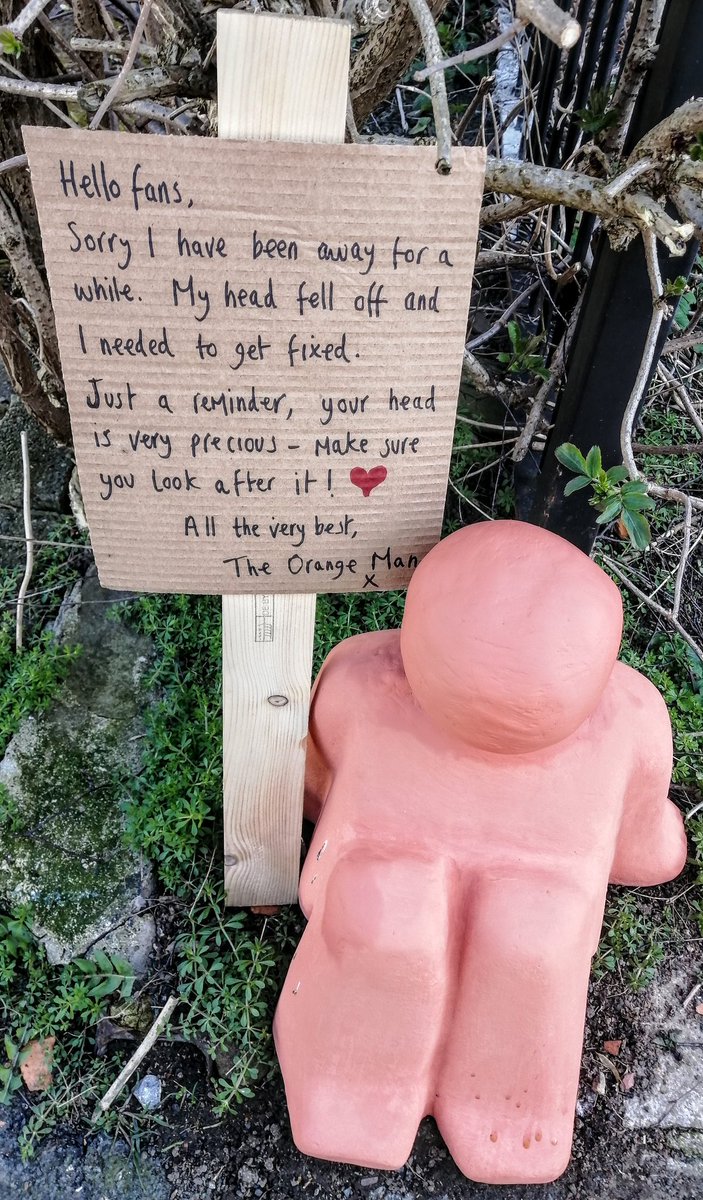 Hello fans,
Sorry I have been away for a
while. My head fell off and
I needed to get fixed.
Just a reminder, your head
is very precious – Make sure
you look after it! ♥
All the very best,
The Orange Man
X